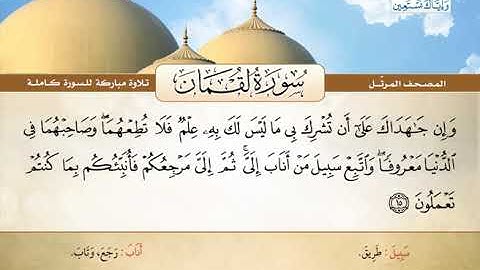 وَإِيَّاكَ نَسْتَعِين
المصحف المرتّل
سُورَةُ لُقْمَان
تلاوة مباركة للسورة كاملة
وَإِن جَٰهَدَاكَ عَلَىٰٓ أَن تُشْرِكَ بِى مَا لَيْسَ لَكَ بِهِۦ عِلْمٌ فَلَا تُطِعْهُمَا ۖ وَصَاحِبْهُمَا فِى
ٱلدُّنْيَا مَعْرُوفًا ۖ وَٱتَّبِعْ سَبِيلَ مَنْ أَنَابَ إِلَىَّ ۚ ثُمَّ إِلَىَّ مَرْجِعُكُمْ فَأُنَبِّئُكُم بِمَا كُنتُمْ
تَعْمَلُونَ ١٥
سَبِيلَ : طَرِيقَ.
أَنَابَ : رَجَعَ، وَتَابَ.